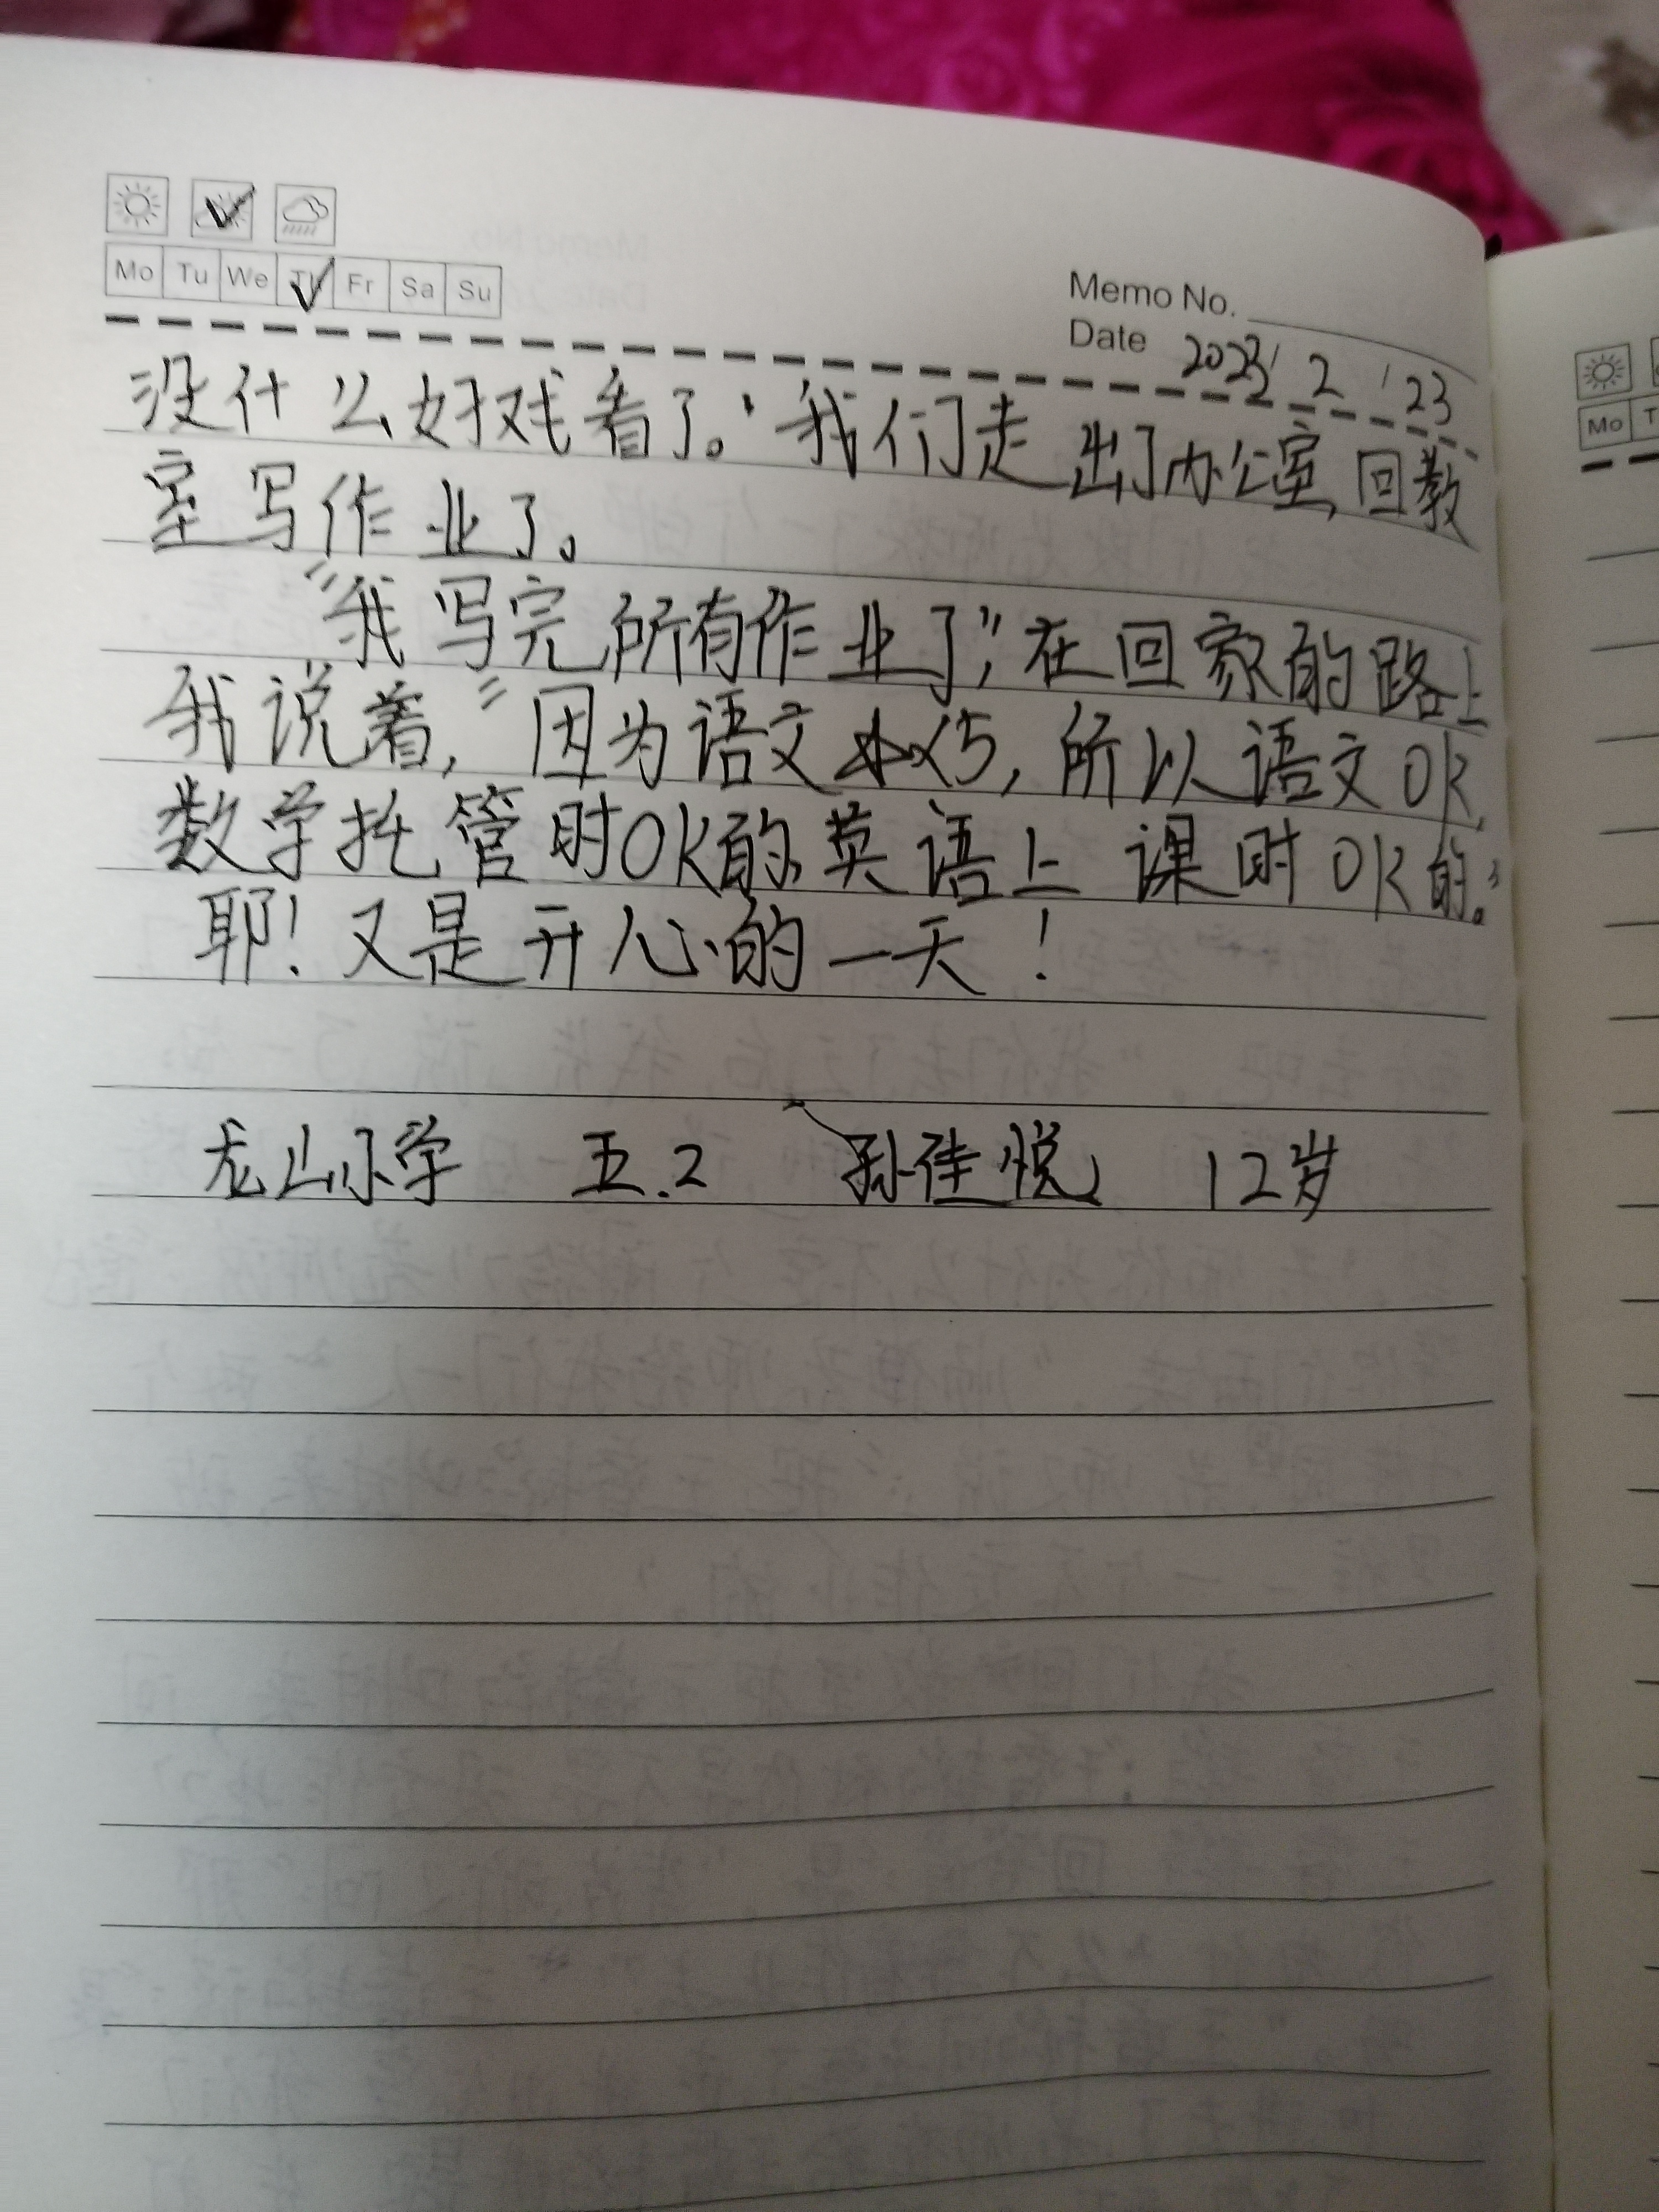 Mo Tu We Th Fr Sa Su
Memo No.
Date 2023 / 2 / 23
没什么好戏看了。"我们走出了办公室,回教
室写作业了。
"我写完所有作业了",在回家的路上
我说着,"因为语文小x5,所以语文OK,
数学托管时OK的,英语上课时OK的。"
耶!又是开心的一天!
龙山小学 五.2 孙佳悦 12岁
Mo T